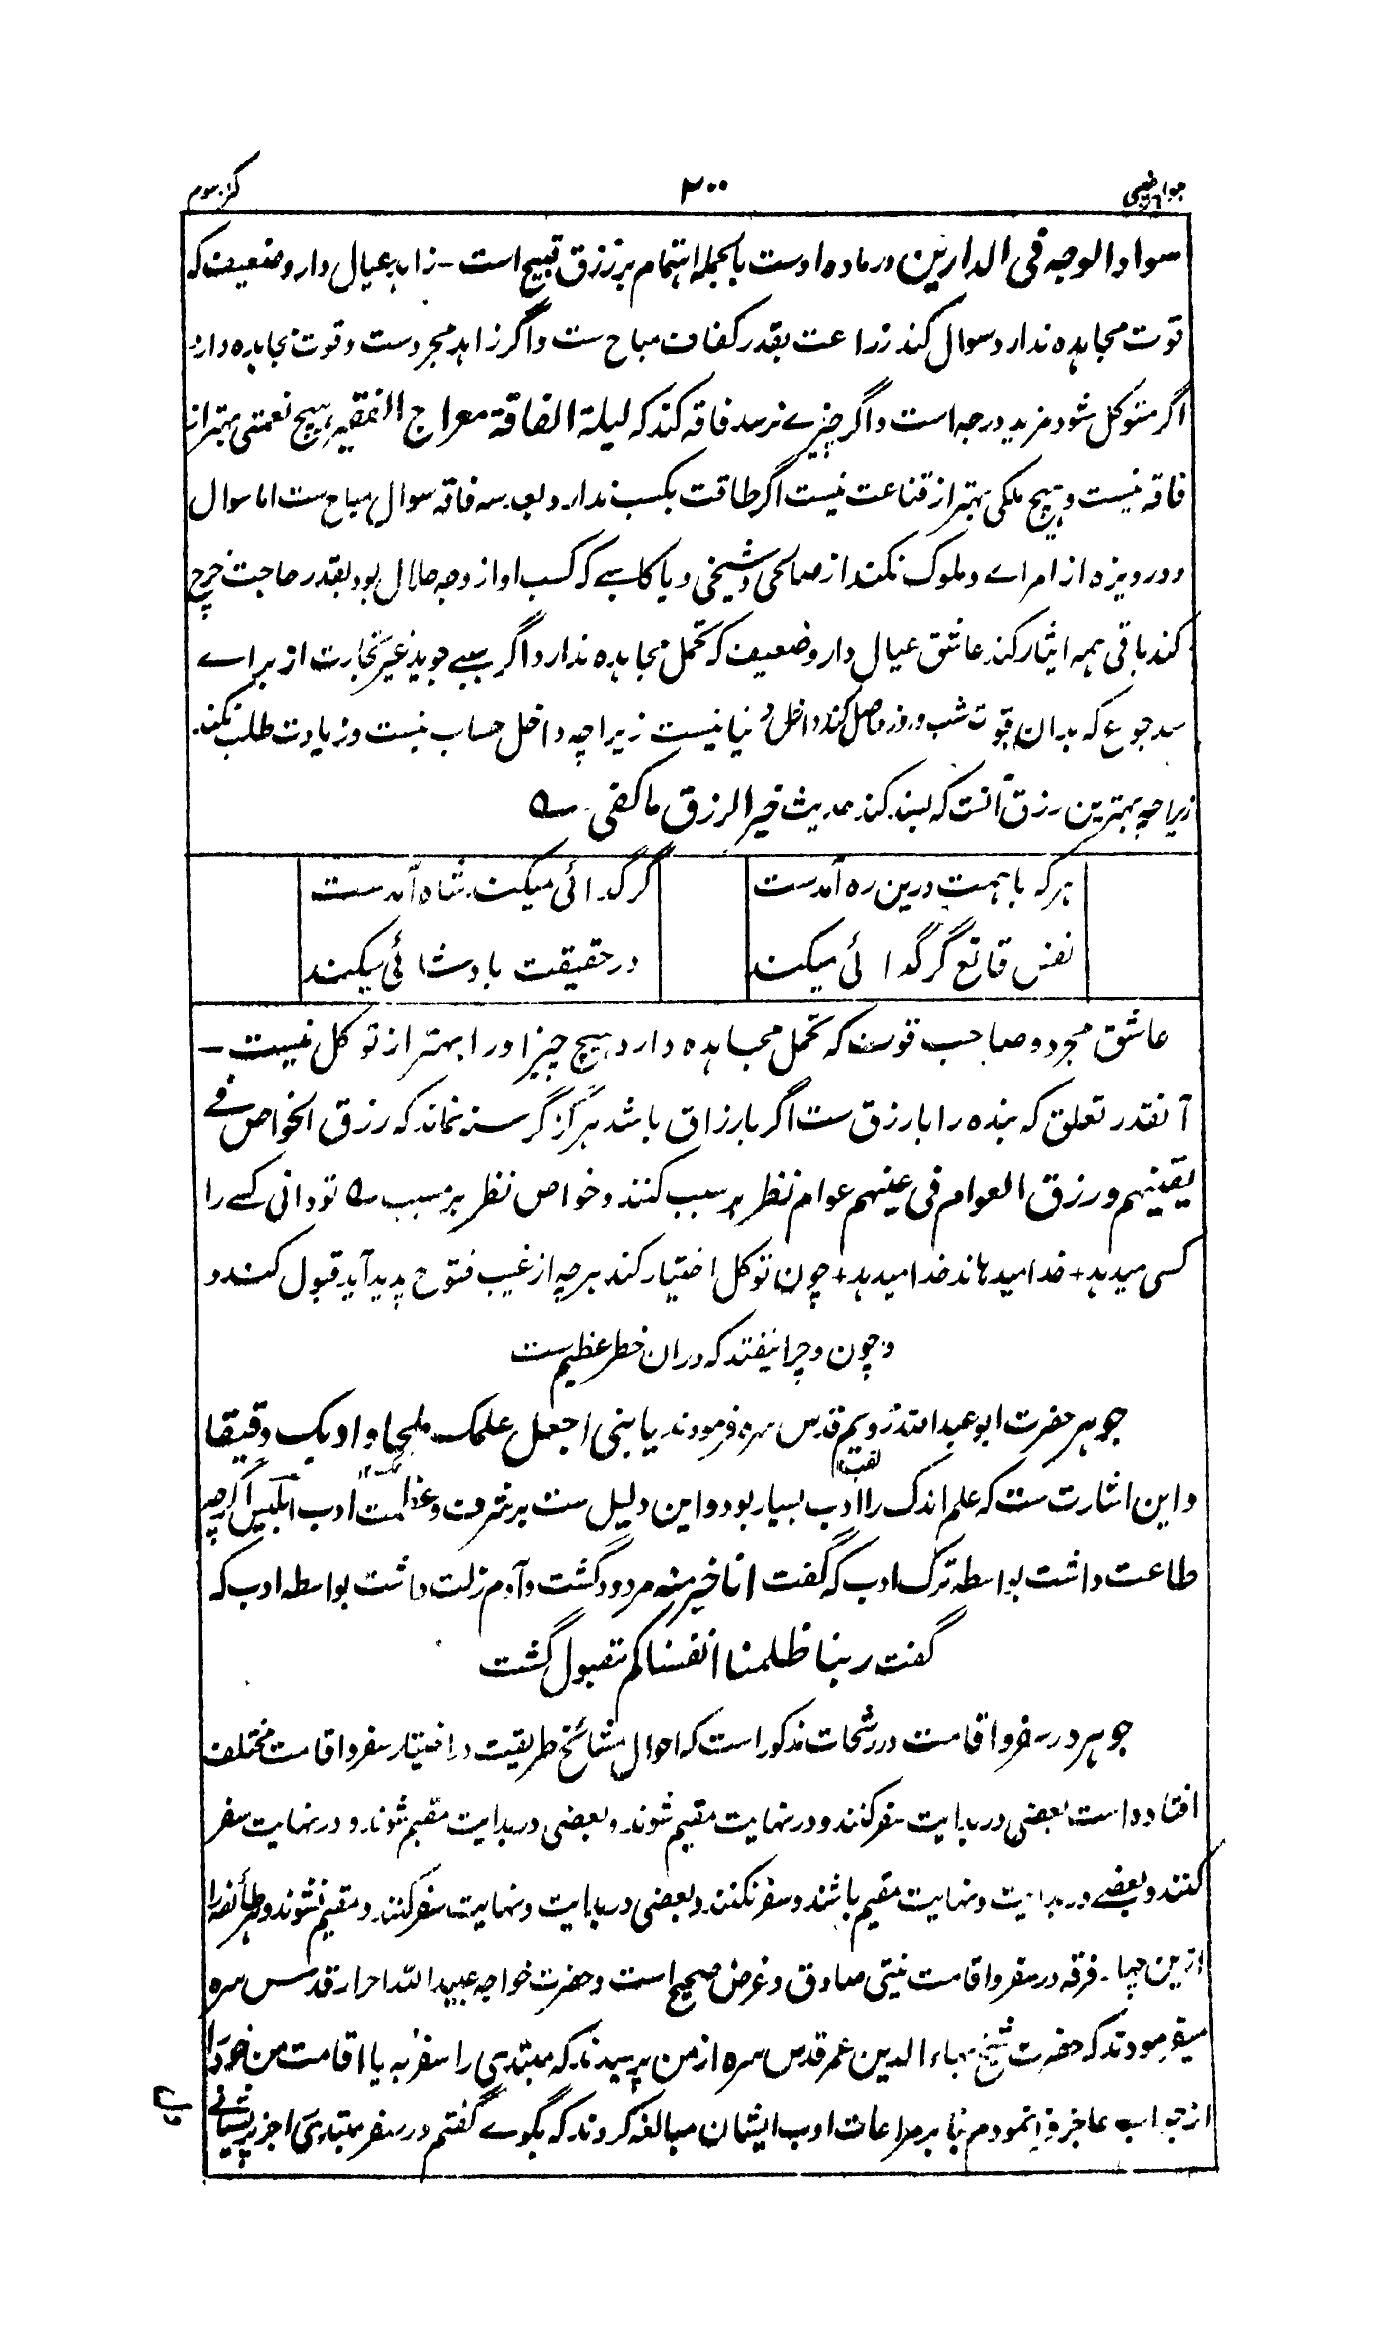 جواہر غیبی ۲۰۰ کنز سوم
سواد الوجه فی الدارین در ماده اوست بالجمله اهتمام بر رزق قبیح است - زاہد عیال دار و ضعیف که
قوت مجاہده ندارد سوال کند زراعت بقدر کفاف مباح ست و اگر زاہد مجرد ست و قوت مجاہده دارد
اگر متوکل شود مزید درجه است و اگر چیزے نرسد فاقه کند که لیلة الفاقة معراج الفقیر ہیچ نعمتی بہتر از
فاقه نیست و ہیچ ملکی بہتر از قناعت نیست اگر طاقت بکسب ندارد بعد سه فاقه سوال مباح ست اما سوال
و دریوزه از امراے و ملوک نکند از صالحی و شیخی و یا کاسبے که کسب او از وجه حلال بود بقدر حاجت خرچ
کند باقی ہمه ایثار کند عاشق عیال دار و ضعیف که تحمل مجاہده ندارد اگر سببے جوید غیر تجارت از براے
سد جوع که بدان قوت شب و روز حاصل کند داخل دنیا نیست زیراچه داخل حساب نیست و زیادت طلب نکند
زیراچه بہترین رزق آنست که بسند کند حدیث خیر الرزق ما کفی ؎
ہر که با ہمت درین ره آمدست گر گدائی میکند شاه آمدست
نفس قانع گر گدائی میکند در حقیقت بادشائی میکند
عاشق مجرد و صاحب قوت که تحمل مجاہده دارد ہیچ چیز اورا بہتر از توکل نیست -
آنقدر تعلق که بنده را با رزق ست اگر با رزاق باشد ہرگز گرسنه نماند که رزق الخواص فے
یقینہم و رزق العوام فی عینہم عوام نظر بر سبب کنند و خواص نظر بر مسبب ؎ تو دانی کسے را
کسی میدہد + خدا میدہاند خدا میدہد + چون توکل اختیار کند ہرچه از غیب فتوح پدید آید قبول کند و
و چون و چرا نیفتد که دران خطر عظیم ست
جوہر حضرت ابو عبد الله رویم قدس سره فرمودند یا بنی اجعل علمک ملحا و ادبک دقیقا
و این اشارت ست که علم اندک را ادب بسیار بود و این دلیل ست بر شرف و عظمت ادب ابلیس اگرچه
طاعت داشت بواسطه ترک ادب که گفت انا خیر منه مردود گشت و آدم زلت داشت بواسطه ادب که
گفت ربنا ظلمنا انفسنا کم مقبول گشت
جوہر در سفر و اقامت در رشحات مذکور است که احوال مشائخ طریقت در اختیار سفر و اقامت مختلف
افتاده است بعضی در بدایت سفر کنند و در نہایت مقیم شوند و بعضی در بدایت مقیم شوند و در نہایت سفر
کنند و بعضے در بدایت و نہایت مقیم باشند و سفر نکنند و بعضی در بدایت و نہایت سفر کنند و مقیم نشوند و ہر طائفه را
ازین چہار فرقه در سفر و اقامت نیتی صادق و غرض صحیح است و حضرت خواجه عبید الله احرار قدس سره
میفرمودند که حضرت شیخ بہاء الدین عمر قدس سره از من پرسیدند که مبتدی را سفر به یا اقامت من خود را
از جواب عاجز وانمودم بنا بر مراعات ادب ایشان مبالغه کردند که بگوے گفتم در سفر مبتدی را جز پریشانے